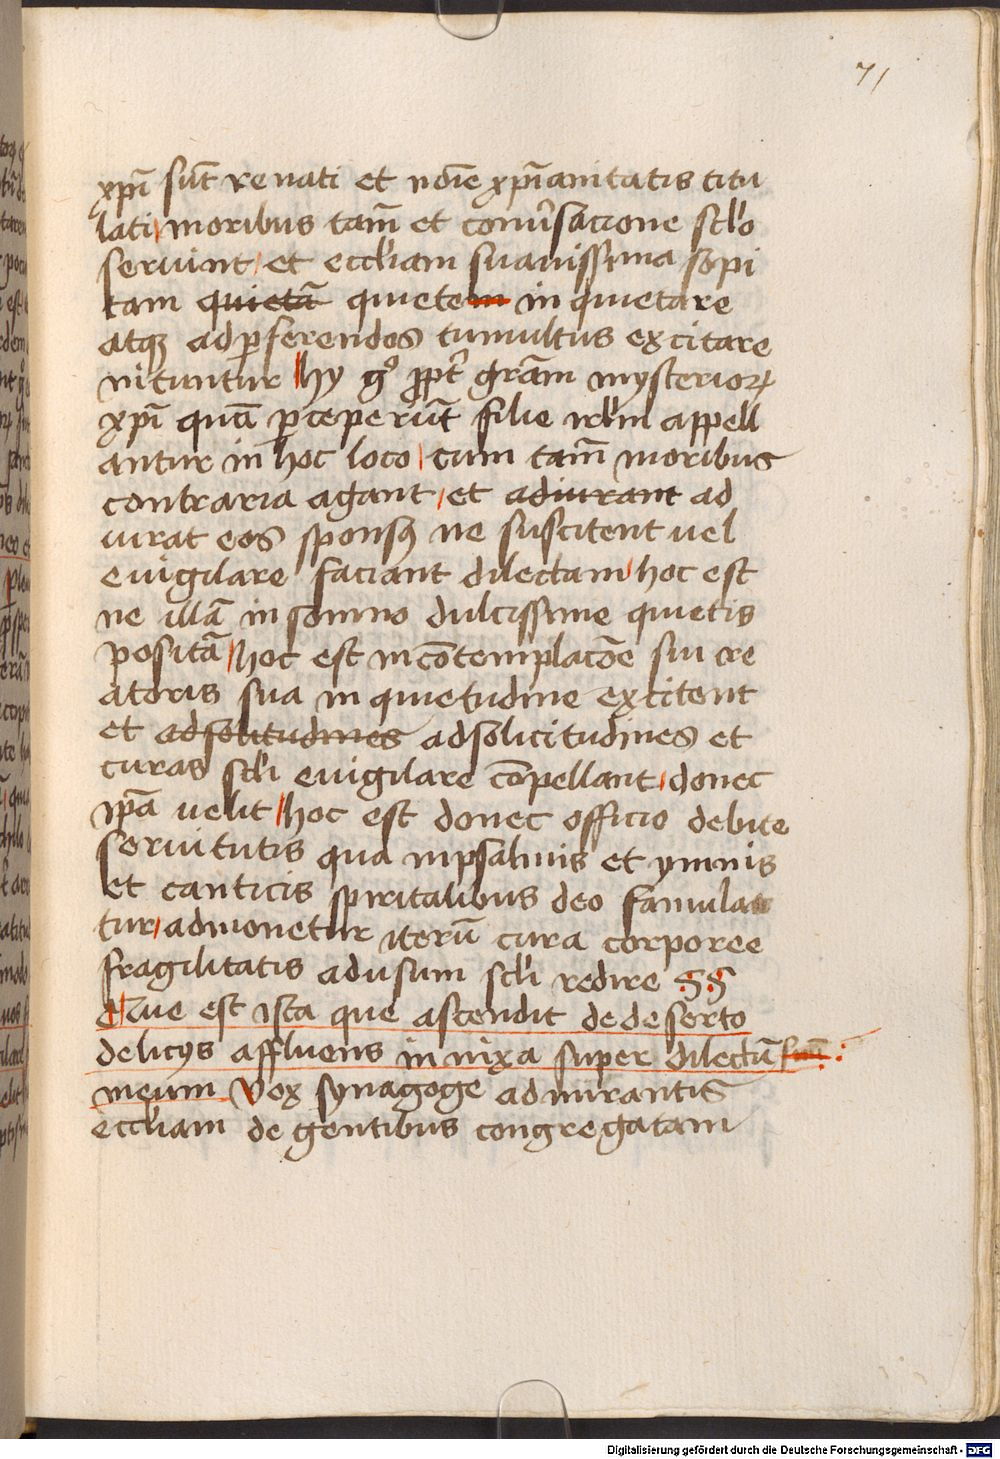 71
xp̄i sūt renati et noīe xp̄ianitatis titu
lati moribus tam̄ et conuʼsacione sclʼo
seruiūt et eccliam suauissima sopi
tam quietā quietem in quietare
atqꝫ ad ꝑferendos tumultus excitare
nituntur hy gͦ ꝓptʼ grām mysterioꝝ
xp̄i quā ꝑceperūt filie irlʼm appell
antur in hoc loco cum tam̄ moribus
contraria agant et adiurant ad
iurat eos sponsꝰ ne suscitent uel
euigilare faciant dilectam hoc est
ne illā in somno dulcissime quietis
positā hoc est in cōtemplacōe sui cre
atoris sua in quietudine excitent
et adsolitudines adsolicitudines et
curas sclʼi euigilare cōpellant donec
ip̄a uelit hoc est donec officio debite
seruitutis qua inpsalmis et ymnis
et canticis spiritalibus deo famula
tur admonetur iterū cura corporee
fragilitatis adusum sclʼi redire
Que est ista que ascendit de deserto
delicijs affluens innixa super dilectū suū
meum Vox synagoge admirantis
eccliam de gentibus congregatam
Digitalisierung gefördert durch die Deutsche Forschungsgemeinschaft - DFG